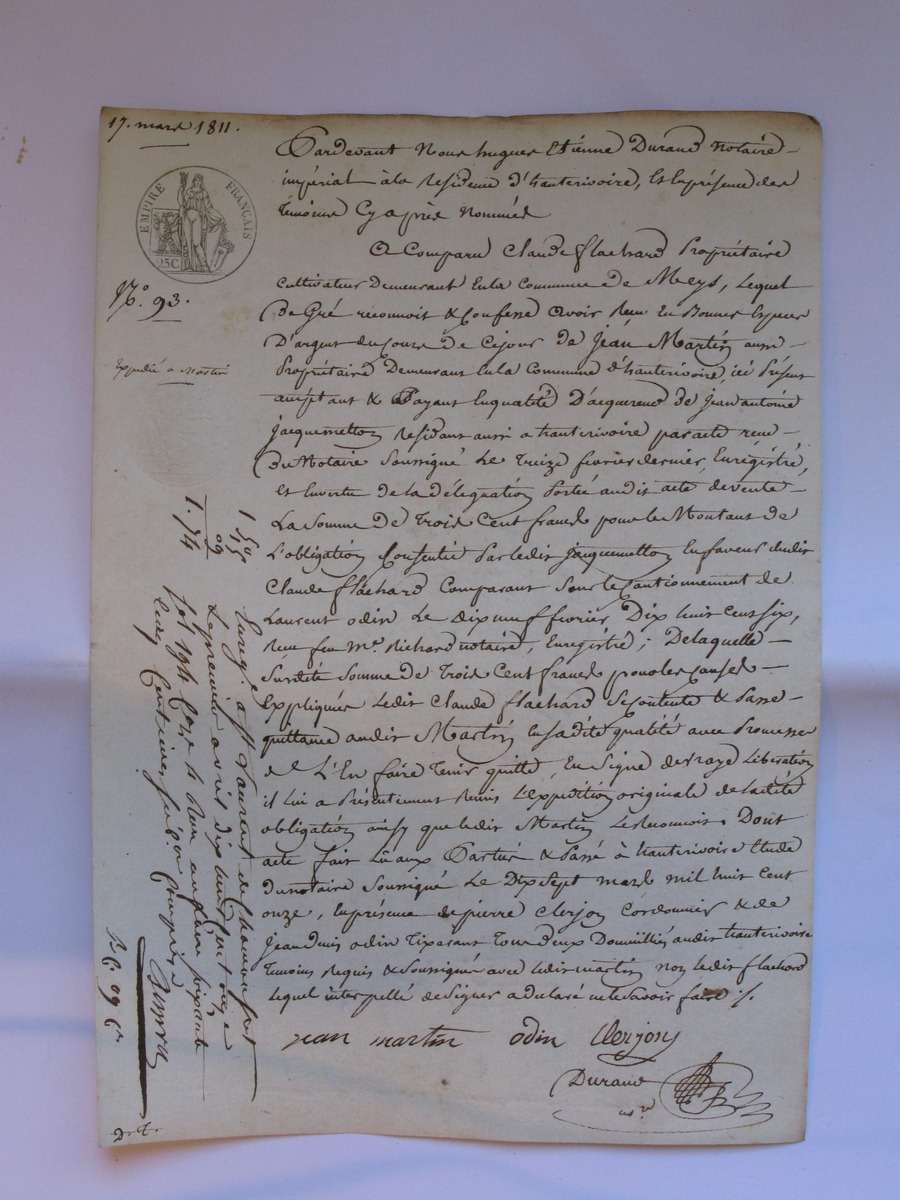 17. mars 1811.
EMPIRE FRANÇAIS
25 C.
N.o 93.
Expédié a Martin
Pardevant Nous hugues Etienne Durand Notaire
impérial à la Residence d'hauterivoire, Et En présence des
témoins Cy après Nommés
A Comparu Claude flachard Propriétaire
Cultivateur Demeurant En la Commune de Meys, Lequel
De Gré reconnoit & Confesse avoir Reçu En Bonnes Especes
D'argent du Cours de Cejour de jean Martin aussi
Propriétaire Demeurant En la Commune d'hauterivoire, ici Présent
acceptant & Payant En qualité D'acquereur de jean antoine
jacquemetton Residant aussi a hauterivoire par acte reçu
Du Notaire Soussigné Le Treize fevrier dernier, Enregistré,
Et En vertu de la délégation Portée audit acte de vente
La Somme de Trois Cent francs pour le Montant de
L'obligation Consentie Par ledit jacquemetton En faveur dudit
Claude flachard Comparant Sous le Cautionnement de
Laurent odin Le dix neuf fevrier Dix huit Cent six,
Reçu feu Me. Richard notaire, Enregistré; De laquelle
Susdite Somme de Trois Cent francs pour les Causes
Expliquées Ledit Claude flachard Se Contente & Passe
quittance audit Martin En Sadite qualité avec Promesse
de L'En faire Tenir quitte, En Signe de vraye Libération
il lui a Présentement Remis L'Expédition originale de ladite
obligation ainsy que ledit Martin Le Reconnoit. Dont
acte fait Lû aux Parties & Passé à hauterivoire Etude
du notaire Soussigné Le Dix Sept mars mil huit Cent
onze, En présence de pierre Clerjon Cordonnier & de
jean Denis odin Tixerant Tous deux Domiciliés audit hauterivoire
Témoins Requis & Soussignés avec ledit martin non ledit flachard
Lequel interpellé de Signer a declaré ne le Savoir faire
jean martin odin Clerjon
Durand
1 65
09
1. 74
Enregé a St Laurent de chamousset
Le premier avril dix huit cent onze
fol. Reçu un franc soixante
D. T.